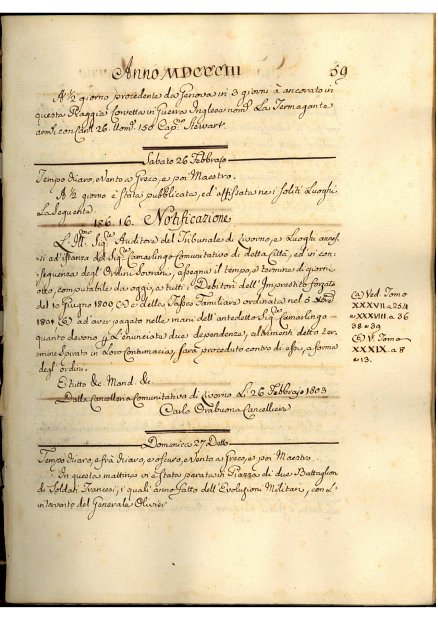 Anno MDCCCIII 59
A ½ giorno procedente da Genova in 3 giorni à ancorato in
questa Piaggia Corvetta in Guerra Inglese nom.ª La Termagante
arm.ª con Can.i 26. Uom.i 150 Cap.º Stewart.
Sabato 26 Febbrajo
Tempo chiaro, e Vento a Greco, e poi Maestro.
A ½ giorno è stata pubblicata, ed affissata nei soliti Luoghi
La seguente
186. 16. Notificazione
L' Ill.mo Sig.re Auditore del Tribunale di Livorno, e Luoghi annes-
si ad istanza del Sig.re Camarlingo Comunitativo di detta Città, ed in con-
seguenza degl' Ordini Sovrani, assegna il tempo, e termine di giorni
otto, computabile da oggi, a tutti i Debitori dell' Imprestito forzato
del 10 Giugno 1800 e delle Tasse Familiare ordinata nel 5
1801 ad aver pagato nelle mani dell' antedetto Sig.re Camarlingo
quanto devono p. L' enunciate due dependenze, altrimenti detto ter-
mine spirato in Loro Contumacia, sarà proceduto contro di essi, a forma
degl' ordini.
E tutto &c. Mand. &c.
Dalla Cancelleria Comunitativa di Livorno Li 26 Febbrajo 1803
Carlo Orabuona Cancelliere
Ved. Tomo
XXXVII. a 254
e XXXVIII. a 36
38 e 39
V. Tomo
XXXIX. a 8
e 13.
Domenica 27 Detto
Tempo chiaro, e frà chiaro, e oscuro, e Vento a Greco, e poi Maestro.
In questa mattina vi è stata parata in Piazza di due Battaglion
di Soldati Francesi, i quali anno fatto dell' Evoluzioni Militari, con L'
intervento del Generale Olivier